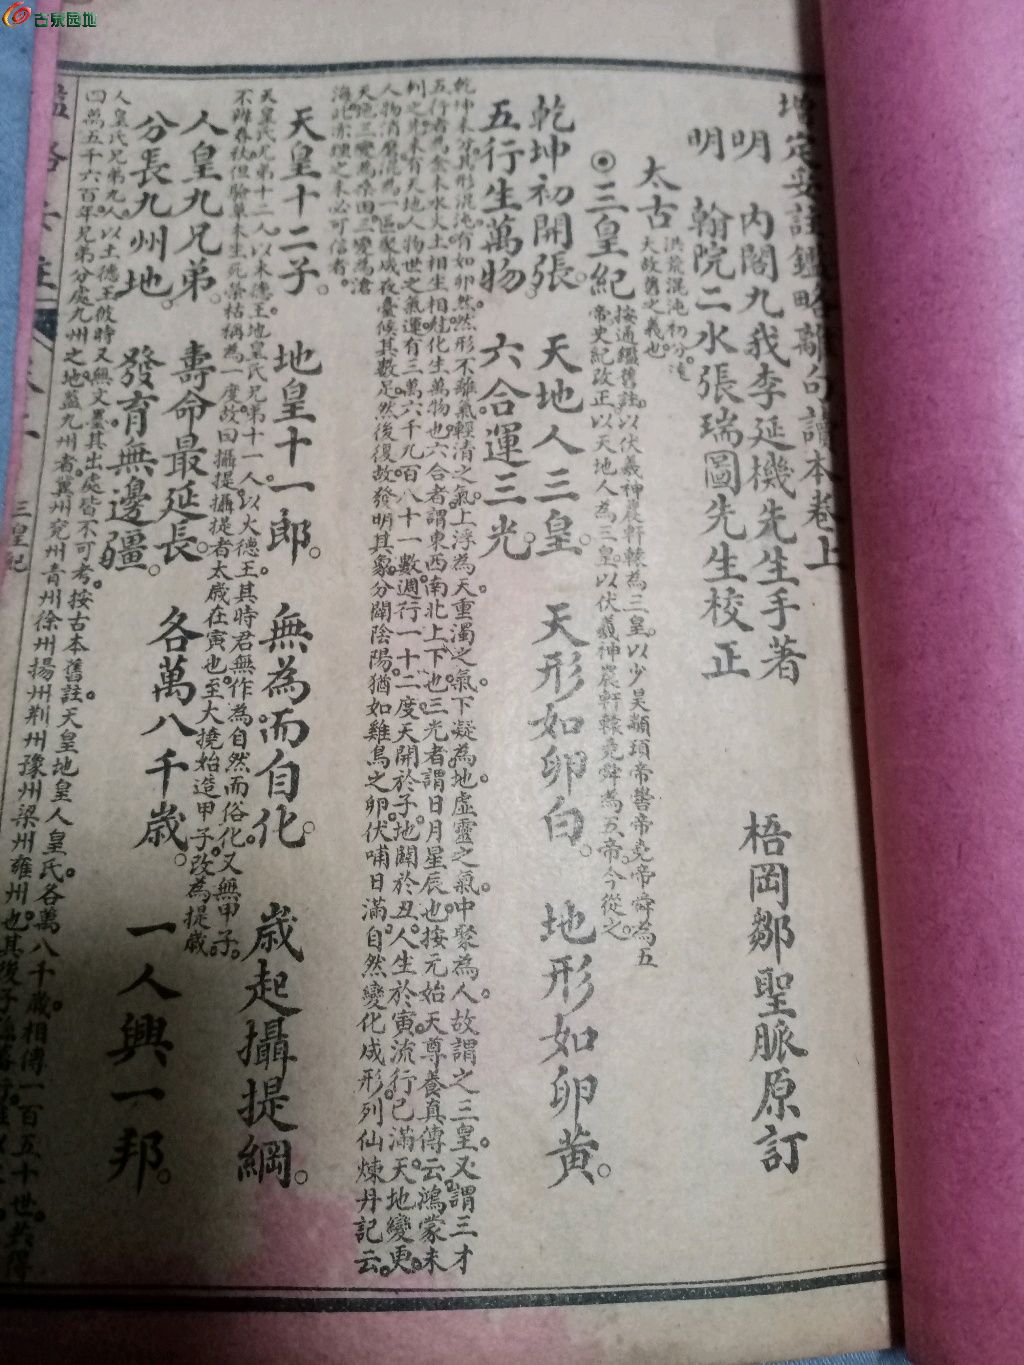 古泉园地
增定妥註鑑略離句讀本卷上
明　內閣九我李延機先生手著
明　翰院二水張瑞圖先生校正
梧岡鄒聖脈原訂
太古
洪荒混沌初分。遠
大故舊之義也。
⊙三皇紀
按通鑑舊註。以伏羲神農軒轅為三皇。以少昊顓頊帝嚳帝堯帝舜為五
帝。史紀改正以天地人為三皇以伏羲神農軒轅堯舜為五帝。今從之。
乾坤初開張。天地人三皇。天形如卵白。地形如卵黃。
五行生萬物。六合運三光。
乾坤未分。其形混沌。有如卵然。然形不離氣輕清之氣。上浮為天。重濁之氣。下凝為地。虛靈之氣。中聚為人。故謂之三皇。又謂三才
五行者。為金木水火土相生相尅。化生萬物也。六合者。謂東西南北上下也。三光者。謂日月星辰也。按元始天尊養真傳云。鴻蒙未
判之。未有天地人物世之氣運。有三萬六千九百八十一數。週行一十二度。天開於子。地闢於丑。人生於寅。流行已滿。天地變更。
人物消磨。混為一區。聚成夜臺。候其數足。然後復故。發明其象。分闢陰陽。猶如雞鳥之卵。伏哺日滿。自然變化成形。列仙煉丹記云。
天地三變為桑田。三變為滄
海。此亦理之未必可信者。
天皇十二子。地皇十一郎。無為而自化。歲起攝提綱。
天皇氏兄弟十二人。以木德王。地皇氏兄弟十一人。以火德王。其時君無作為。自然而俗化。又無甲子。
不辨春秋。但驗草木生死榮枯。稱為一度。故曰攝提。攝提者。太歲在寅也。至大撓始造甲子。改為提歲。
人皇九兄弟。壽命最延長。各萬八千歲。一人興一邦。
分長九州地。發育無邊疆。
人皇氏兄弟九人。以土德王。彼時又無文墨。其出處皆不可考。按古本舊註。天皇地皇人皇氏。各萬八千歲。相傳一百五十世。共得
四萬五千六百年。兄弟分處九州之地。蓋九州者。冀州兗州青州徐州揚州荆州豫州梁州雍州也。其後子
三皇紀